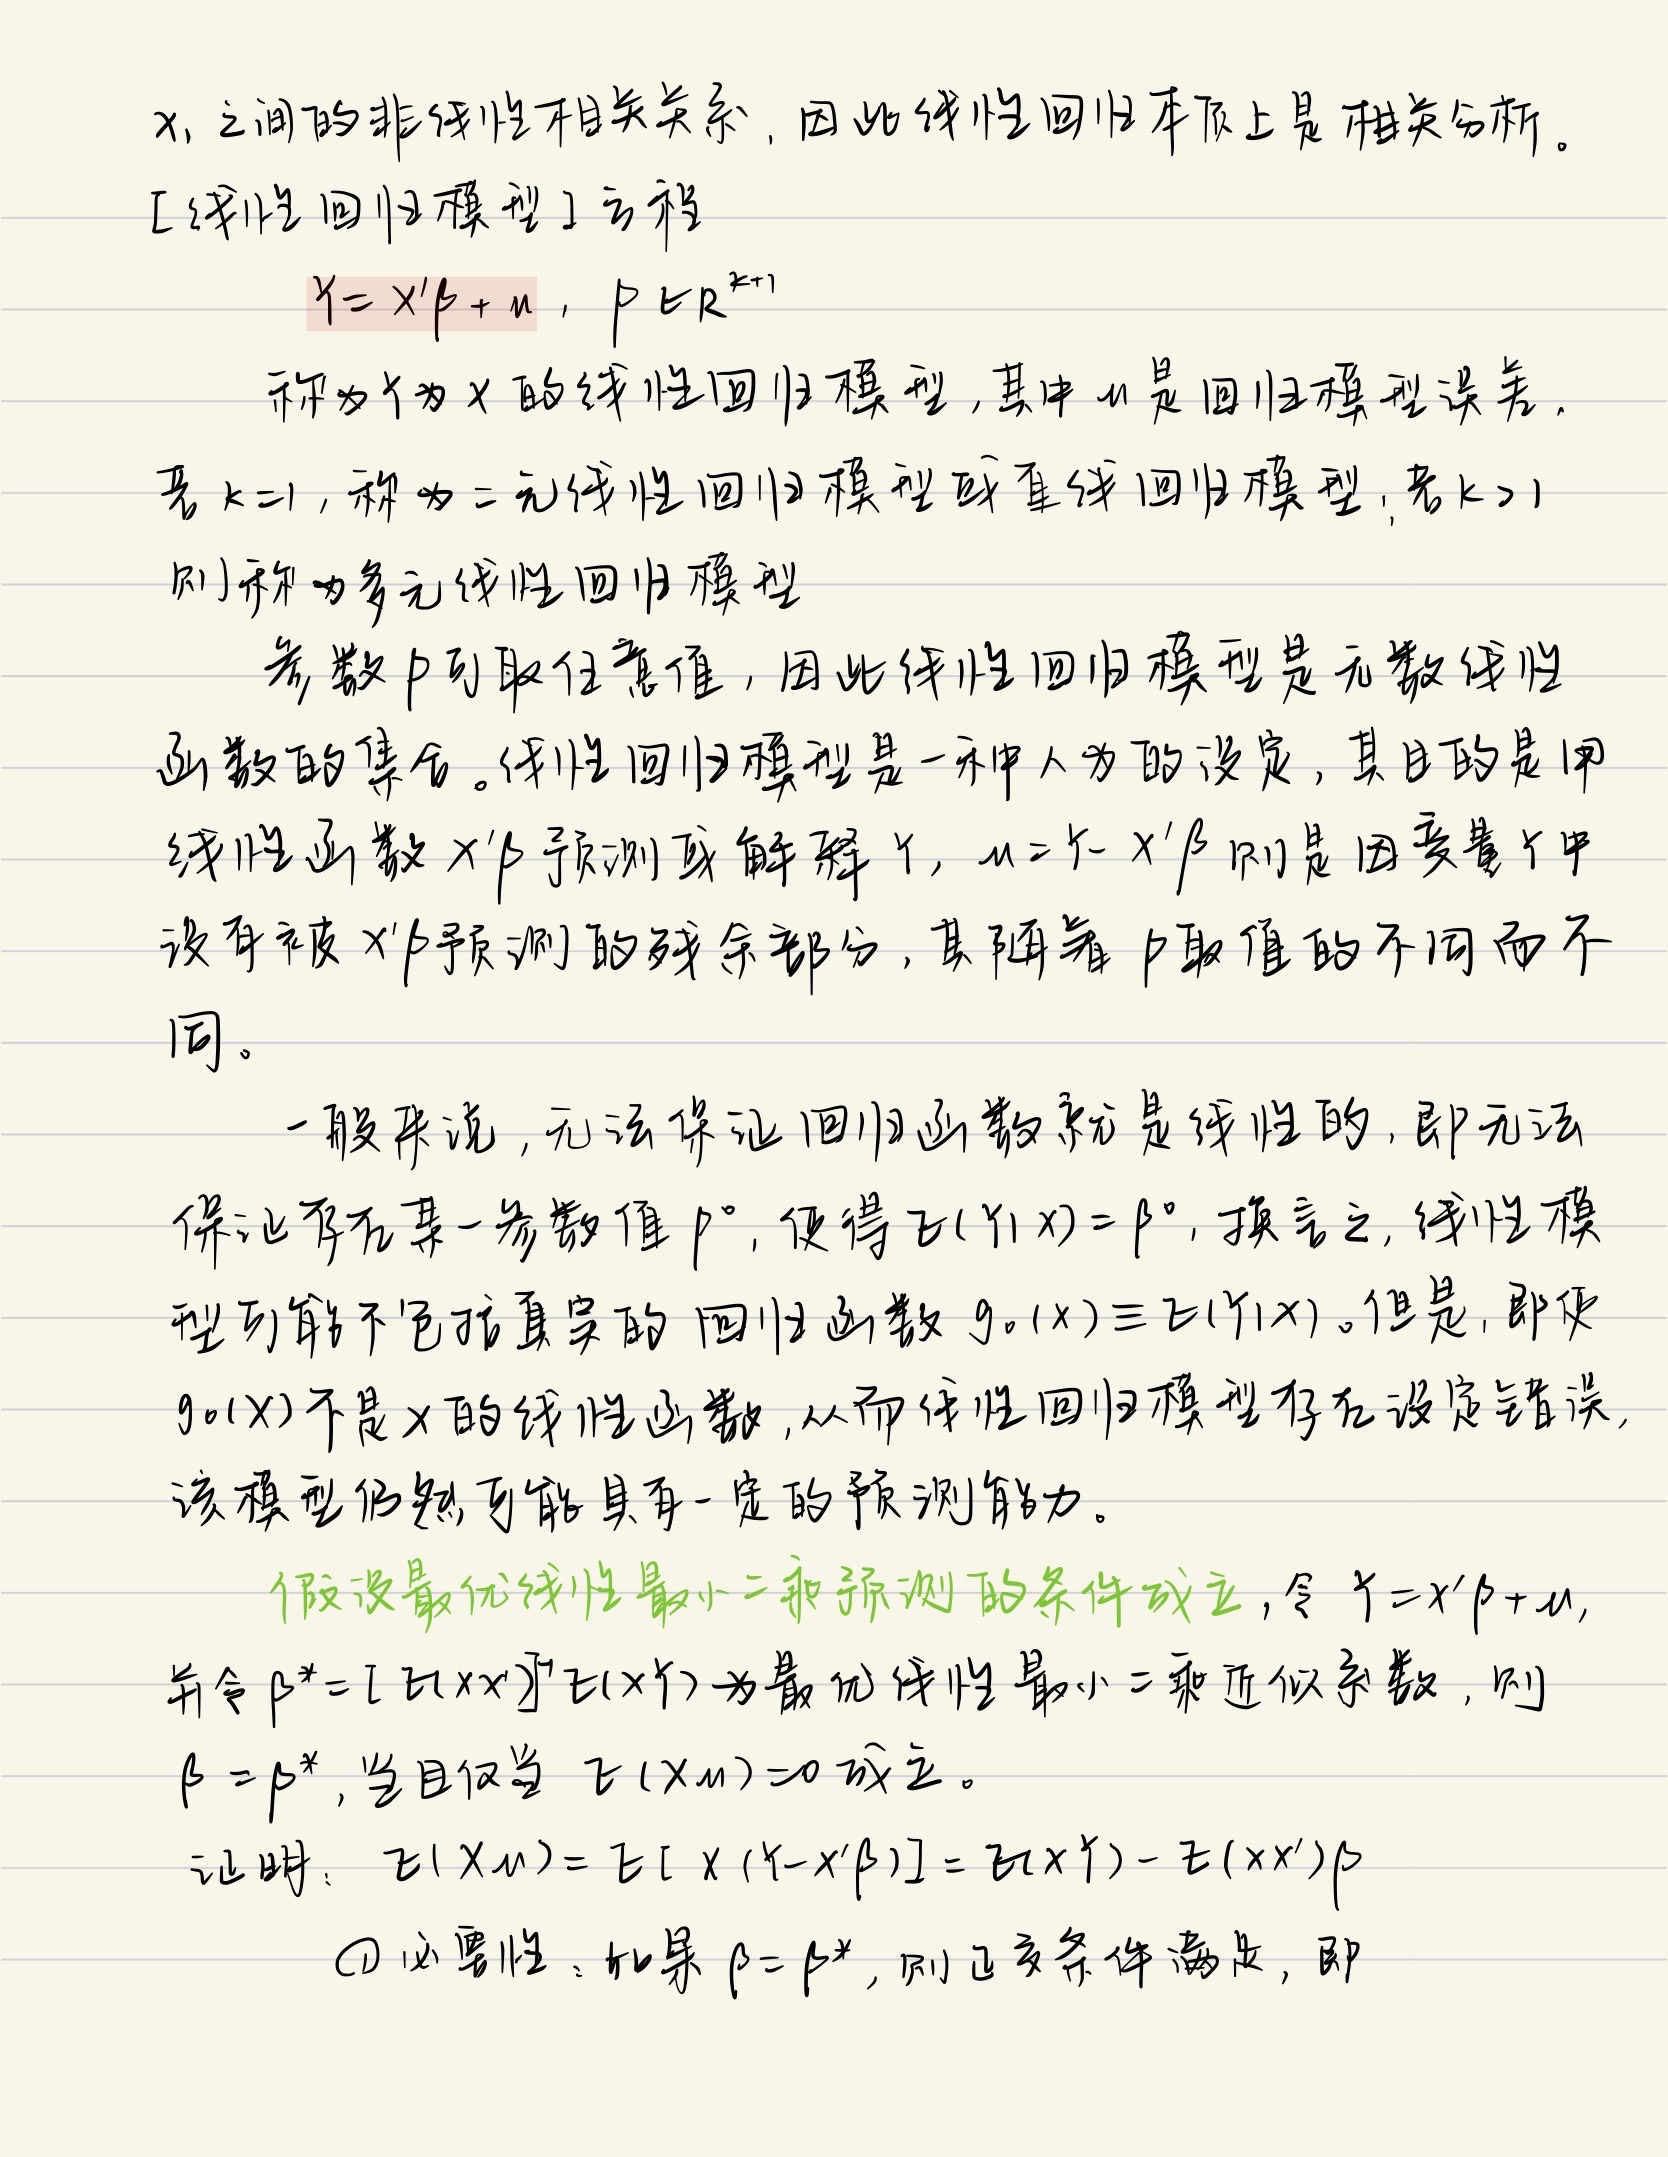 X₁ 之间的非线性相关关系,因此线性回归本质上是相关分析。
[线性回归模型] 方程
Y = X'β + u , β ∈ R^{k+1}
称为 Y 为 X 的线性回归模型,其中 u 是回归模型误差.
若 k=1,称为二元线性回归模型或直线回归模型;若 k>1
则称为多元线性回归模型
参数 β 可取任意值,因此线性回归模型是无数线性
函数的集合。线性回归模型是一种人为的设定,其目的是用
线性函数 X'β 预测或解释 Y, u = Y - X'β 则是因变量 Y 中
没有被 X'β 预测的残余部分,其随着 β 取值的不同而不
同。
一般来说,无法保证回归函数就是线性的,即无法
保证存在某一参数值 β⁰,使得 E(Y|X) = β⁰,换言之,线性模
型可能不包括真实的回归函数 g₀(X) ≡ E(Y|X)。但是,即使
g₀(X) 不是 X 的线性函数,从而线性回归模型存在设定错误,
该模型仍然可能具有一定的预测能力。
假设最优线性最小二乘预测的条件成立,令 Y = X'β + u,
并令 β* = [E(XX')]⁻¹E(XY) 为最优线性最小二乘近似系数,则
β = β*,当且仅当 E(Xu) = 0 成立。
证明: E(Xu) = E[X(Y-X'β)] = E(XY) - E(XX')β
① 必要性:如果 β = β*,则正交条件满足,即